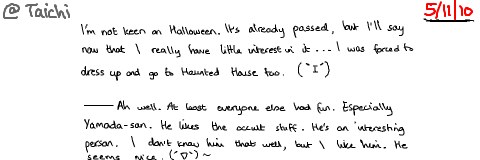 @ Taichi
5/11/10
I'm not keen on Halloween. It's already passed, but I'll say
now that I really have little interest in it... I was forced to
dress up and go to Haunted House too. (`I´)
—— Ah well. At least everyone else had fun. Especially
Yamada-san. He likes the occult stuff. He's an interesting
person. I don't know him that well, but I like him. He
seems nice. (´▽`)~